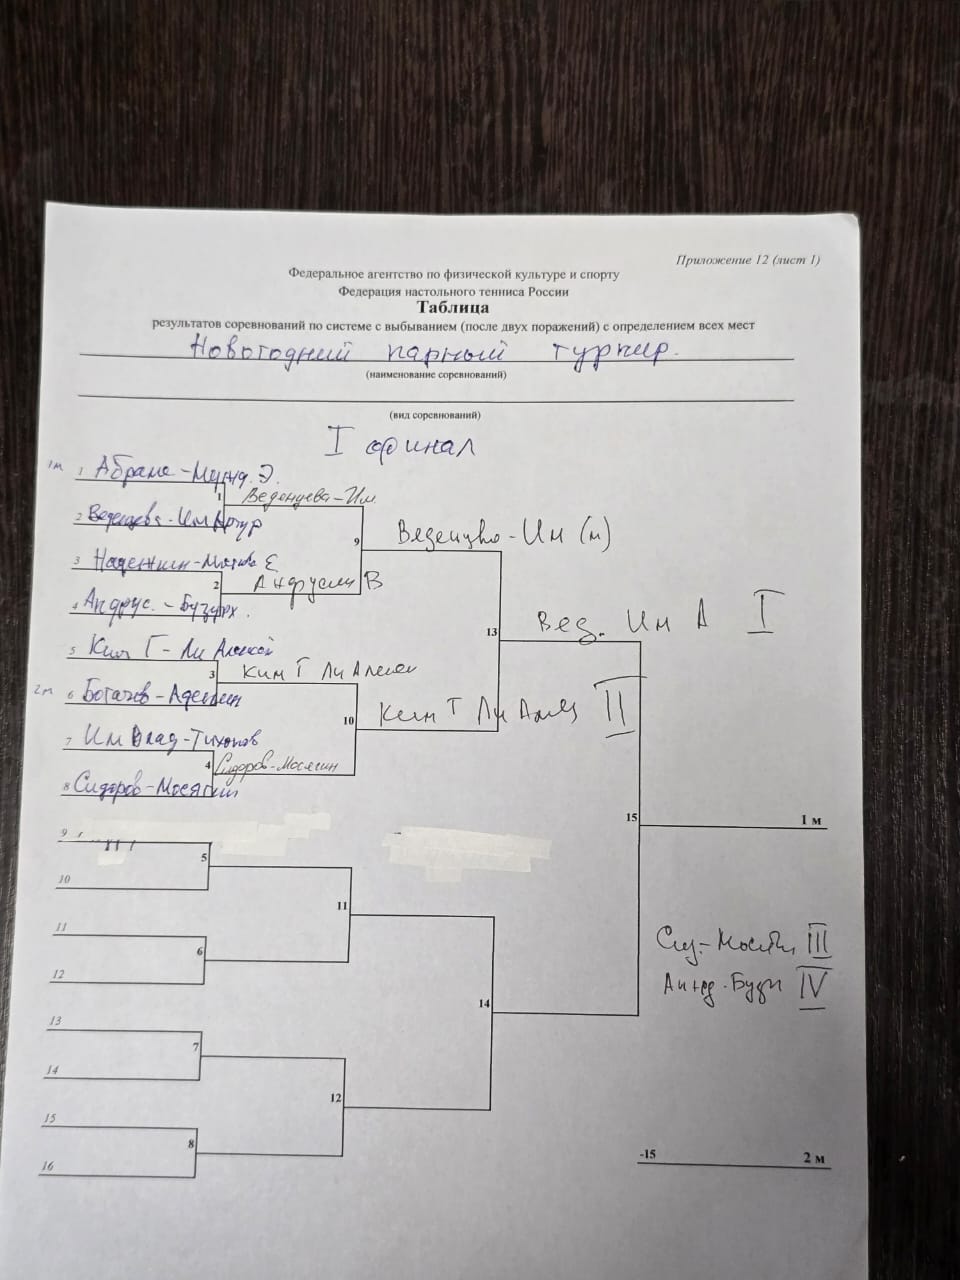 Приложение 12 (лист 1)
Федеральное агентство по физической культуре и спорту
Федерация настольного тенниса России
Таблица
результатов соревнований по системе с выбыванием (после двух поражений) с определением всех мест
Новогодний парный турнир.
(наименование соревнований)
(вид соревнований)
I финал
1м 1 Абраме - Э.
1 Веденцева - Им
2 Веденцева - Им Артур
9 Веденцево - Им (м)
3 Наденкин - Е
2 Андрусив В
4 Андрус. - Бузурх.
13 Вед. Им А I
5 Ким Г - Ли Алексей
3 Ким Т Ли Алексе
2м 6 Богачев - Аделкин
10 Ким Т Ли II
7 Им Влад - Тихонов
4 Сидоров - Мосягин
8 Сидоров - Мосягин
15 1 м
9
5
10
11
11
Сид - III
6
12
IV
14
13
7
14
12
15
8
16
-15 2 м